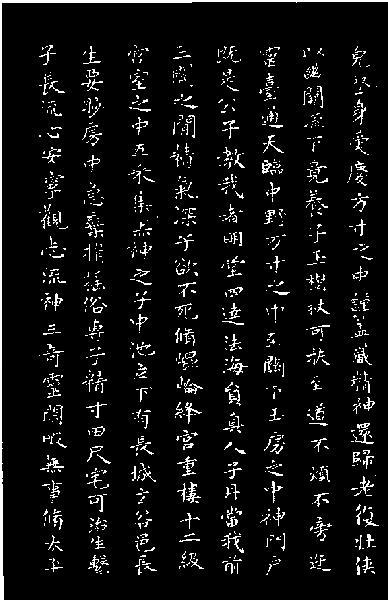 完堅身受慶方寸之中謹盖藏精神還歸老復壮侠
以幽闕流下竟養子玉樹杖可扶至道不煩不旁迕
靈臺通天臨中野方寸之中至關下玉房之中神門戶
既是公子教我者明堂四達法海員真人子丹當我前
三關之間精氣深子欲不死脩崐崘絳宮重樓十二級
宮室之中五采集赤神之子中池立下有長城玄谷邑長
生要眇房中急棄捐摇俗專子精寸田尺宅可治生繫
子長流心安寧觀志流神三奇靈閑暇無事脩太平